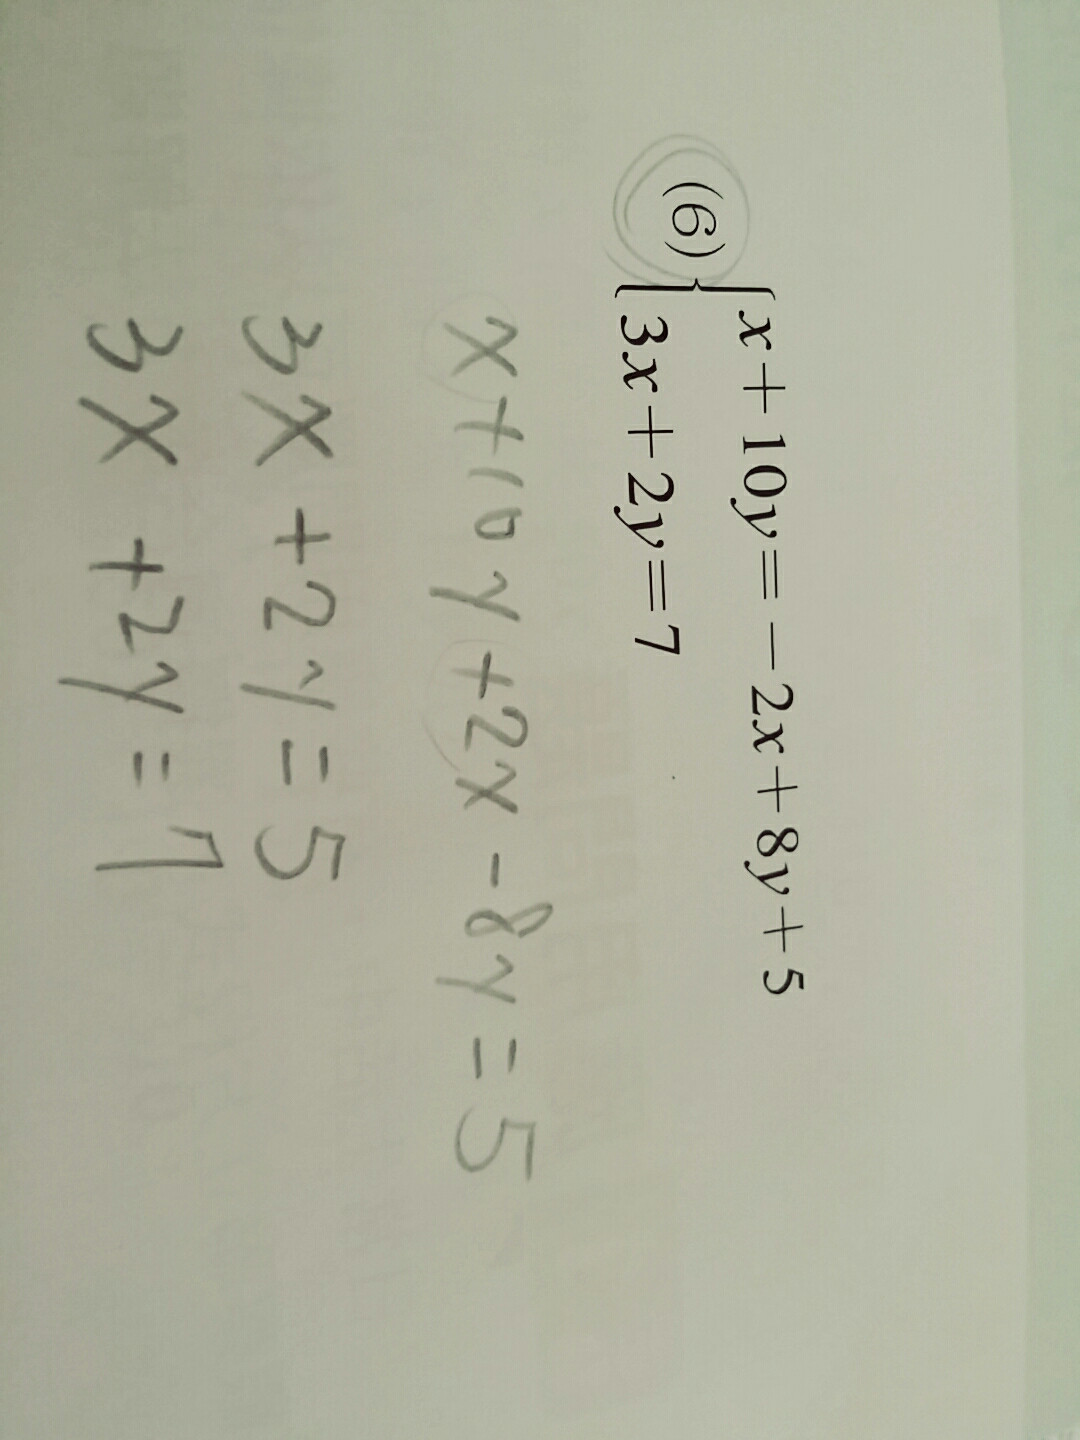 (6) { x + 10y = −2x + 8y + 5
3x + 2y = 7
x+10y+2x-8y=5
3x+2y=5
3x+2y=7